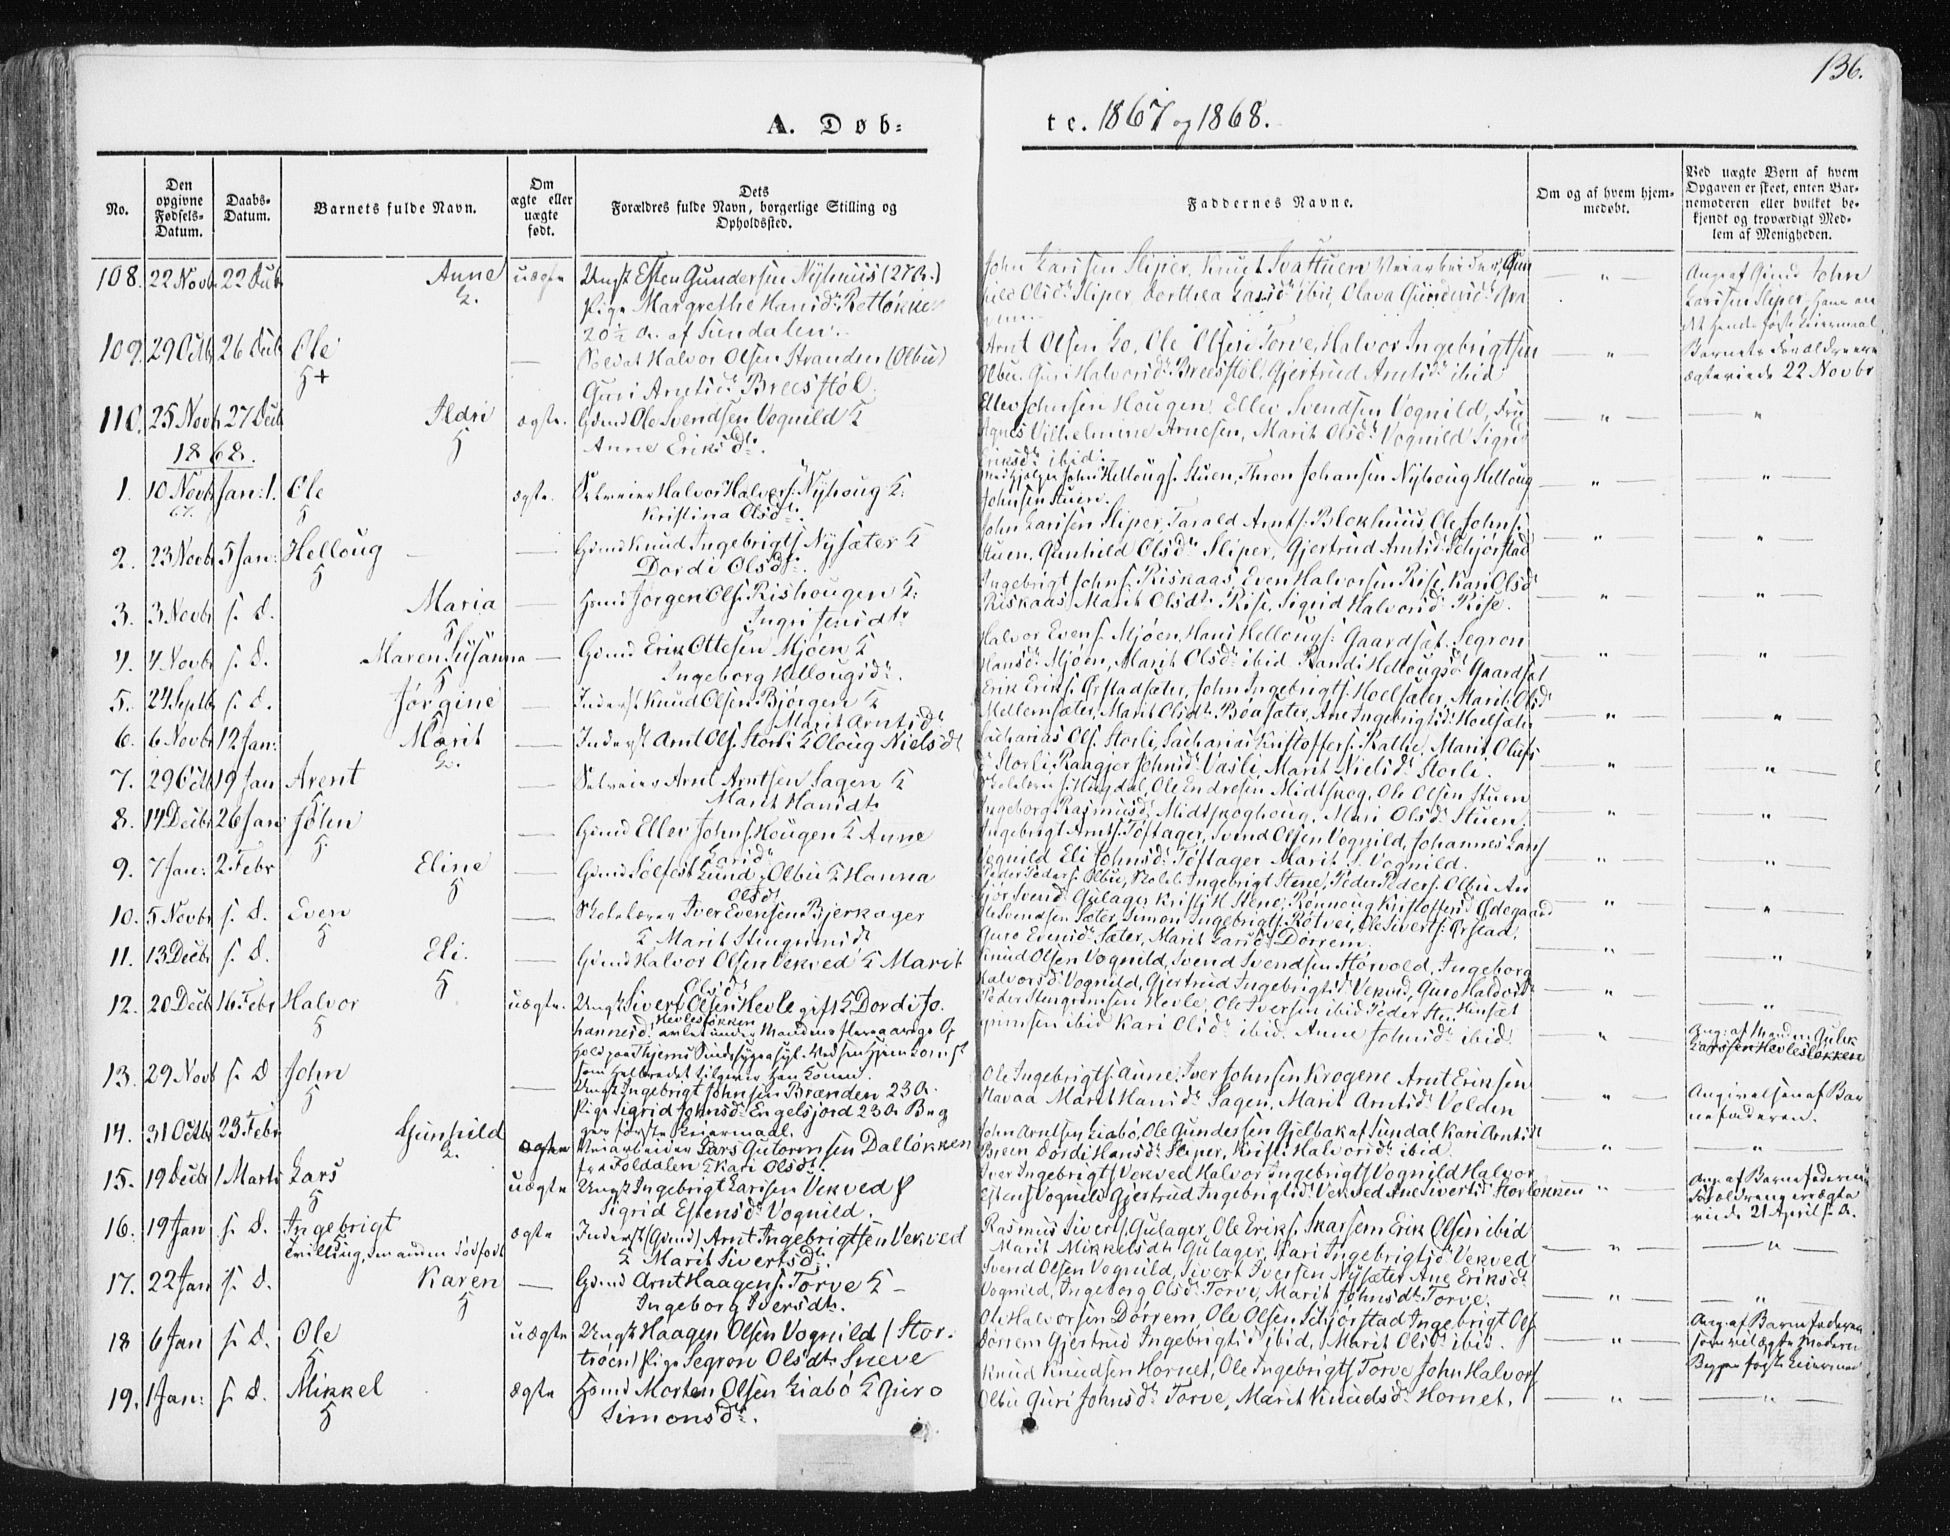 136.
A. Døb-
te. 1867 og 1868.
No.
Den opgivne Fødsels-Datum.
Daabs-Datum.
Barnets fulde Navn.
Om ægte eller uægte født.
Dets Forældres fulde Navn, borgerlige Stilling og Opholdssted.
Faddernes Navne.
Om og af hvem hjem-medøbt.
Ved uægte Børn af hvem Opgaven er skeet, enten Bar-nemoderen eller hvilket be-kjendt og troværdigt Med-lem af Menigheden.
108. 22 Novbr 22 Decb Anne uægte Ungk Esten Gundersen Nyhuus (27 A.)
Pige Margrethe Hansd. Retløkken
20½ A. af Sundalen.
John Larssen Sliper, Knut Svattuen Veiarbeider, Gun
hild Olsdr Sliper, Dorthea Larsdr ibid, Olava Gundersdr
Ang. af Gmd John
Larssen Sliper
109. 29 Octb 26 Decb Ole — Soldat Halvor Olsen Stranden (Olbu)
Guri Arntsdr Breesstøl.
Arnt Olsen Lo, Ole Olsen Torve, Halvor Ingebrigtsen
Olbu. Guri Halvorsdr Breesstøl, Gjertrud Arntsdr ibid
Barnets Forældre ere
ægteviede 22 Novbr
110. 25 Novb 27 Decb Ildri ægte. Gdmd Ole Svendsen Vognild &
Anne Eriksdtr.
Ellev Johnsen Hougen, Ellev Svendsen Vognild, Fru
Agnes Vilhelmine Arnesen, Marit Olsdr Vognild Sigri
Eriksdr ibid.
1868.
1. 10 Novbr 67. Jan: 1. Ole ægte. Selveier Halvor Halvors: Nyhoug &:
Kristina Olsdtr.
John Hellougs. Stuen, Thron Johansen Nyhoug Helloug
Johnsen Stuen.
2. 23 Novbr 5 Jan: Helloug — Gdmd Knud Ingebrigts Nysæter &
Dordi Olsdtr.
John Larssen Sliper, Tarald Arnts. Blokhuus, Ole Johns.
Stuen, Gunhild Olsdr Sliper, Gjertrud Arntsd. Schjørstad
3. 3 Novbr s. D. Maria — Hmd Jørgen Ols. Rishougen &:
Ingri Jensdtr
Ingebrigt Johns. Riskaas, Even Halvorsen Rise, Kari Olsdr
Riskaas, Marit Olsdtr. Rise, Sigrid Halvorsd. Rise.
4. 4 Novbr s. D. Maren Susanna — Gdmd Erik Ottesen Mjøen &
Ingeborg Hellougsdr.
Halvor Evens. Mjøen, Hans Hellougs. Gaardsæt. Segron
Hansdr Mjøen, Marit Olsdr ibid. Randi Hellougsdr Gaardsæt
5. 24 Septb s. D. Jørgine — Inderst Knud Olsen Bjørgen &
Marit Arntsdtr
Erik Eriks. Ørstadsæter, John Ingebrigts. Hoelsæter, Marit Olsdr
Mellemsæter, Marit Olsdr Bøasæter, Ane Ingebrigtsdr Hoelsæter
6. 6 Novbr 12 Jan: Marit — Inderst Arnt Ols. Storli & Oloug Nielsdt
Zacharias Ols. Storli, Zacharias Kristoffers. Ratlie, Marit Olufs
d. Storli, Raagjer Johnsdr Vasli, Marit Nielsdr Storli.
7. 29 Octb 19 Jan Arent — Selveier Arnt Arntsen Sagen &
Marit Hansdtr
Hugdal, Ole Endresen Midtskog, Ole Olsen Stuen
Ingeborg Rasmusdr Midtskoghoug, Mari Olsdr Stuen.
8. 14 Decbr 26 Jan: John — Gdmd Ellev Johns. Hougen & Anne
Larsdr
Ingebrigt Arnts. Toftager, Svend Olsen Vognild, Johannes Lars
Vognild Eli Johnsdr Toftager Marit S. Vognild.
9. 7 Jan: 2 Febr Eline — Gdmd Solfest Lund, Olbu & Hanna
Olsdr
Peder Peders. Olbu, Skolel. Ingebrigt Stene, Peder Peders. Olbu An
Svend. Gulager Kristi H Stene, Rønnoug Kristoffersd Ødegaard
10. 5 Novbr s. D. Even — Skolelærer Iver Evensen Bjerkager
& Marit Stengrimsdt
Ole Svendsen Sæter, Simon Ingebrigts. Røtvei, Ole Siverts. Ørstad,
Guro Evensdr Sæter, Marit Larsdr Dørrem.
11. 13 Decbr s. D. Eli. — Gdmd Halvor Olsen Vekved & Marit
Olsdr
Knud Olsen Vognild, Svend Svendsen Størvold, Ingeborg
Halvorsdr Vognild, Gjertrud Ingebrigtsd Vekved, Guro Haldorsdr
12. 20 Decb 16 Febr Halvor uægte. Ungk Sivert Olsen Hevle gift & Dordi Jo.
hannesdr Hevlesløkken avlet under Mandens fleraarige Op
hold paa Thjems Sindssygeasyl. Ved sin Hjemkomst
som helbredet tilgiver han Konen.
Peder Stengrimsen Hevle, Ole Iversen ibid Peder Sten Hinsæt
grimsen ibid Kari Olsdr ibid. Anne Johnsdr ibid.
Ang. af Manden Gulek
Larssen Hevlesløkken
13. 29 Novb s. D John — Ungk Ingebrigt Johnsen Brænden 23 A.
Pige Sigrid Johnsdr Engelsjord 23 A Beg
ges første Leiermaal.
Ole Ingebrigts. Aune, Iver Johnsen Krogene Arnt Eriksen
Havaa Marit Hansdr Sagen, Marit Arntsdr Volden
Angivelsen af Bar
nefaderen.
14. 31 Octb 23 Febr Gunhild ægte Veiarbeider Lars Gutormsen Dalløkken
fra Foldalen & Kari Olsdtr.
John Arntsen Liabø, Ole Gundersen Gjelbak af Sundal Kari Arntsdt
Breen Dordi Hansdr Sliper, Kristi Halvorsdr ibid.
15. 19 Decbr 1 Marts Lars uægte Ungk Ingebrigt Larssen Vekved &
Sigrid Estensdr Vognild.
Iver Ingebrigts Vekved Halvor Ingebrigts Vognild Halvor
Estens Vognild Gjertrud Ingebrigtsd Vekved Ane Sivertsd Storløkken
Ang. af Barnefaderen
Forældrene ere ægte
viede 21 April s. A.
16. 19 Jan s. D. Ingebrigt
Tvilling, den anden dødfødt ægte Inderst (Gdmd) Arnt Ingebrigtsen Vekved
& Marit Sivertsdr.
Rasmus Siverts. Gulager, Ole Eriks. Skarsem Erik Olsen ibid
Marit Mikkelsdtr Gulager, Kari Ingebrigtsdr Vekved
17. 22 Jan s. D. Karen — Gdmd Arnt Haagens. Torve &
Ingeborg Iversdtr.
Svend Olsen Vognild, Sivert Iversen Nysæter Ane Eriksdr
Vognild, Ingeborg Olsdr Torve, Marit Johnsdtr Torve.
18 6 Jan s. D. Ole uægte Ungk Haagen Olsen Vognild (Stor-
trøen) Pige Segron Olsdtr Sneve
Ole Halvorsen Dørrem, Ole Olsen Schjørstad Ingebrigt Ols
Dørrem Gjertrud Ingebrigtsd ibid, Marit Olsdr ibid.
Ang. af Barnefaderen
som vil ægte Moderen
Begges første Leiermaal
19. 1 Jan: s. D. Mikkel ægte Hmd Morten Olsen Liabø & Guro
Simonsdr.
Knud Knudsen Hornet, Ole Ingebrigts Torve John Halvors
Olbu Guri Johnsdr Torve, Marit Knudsdr Hornet.